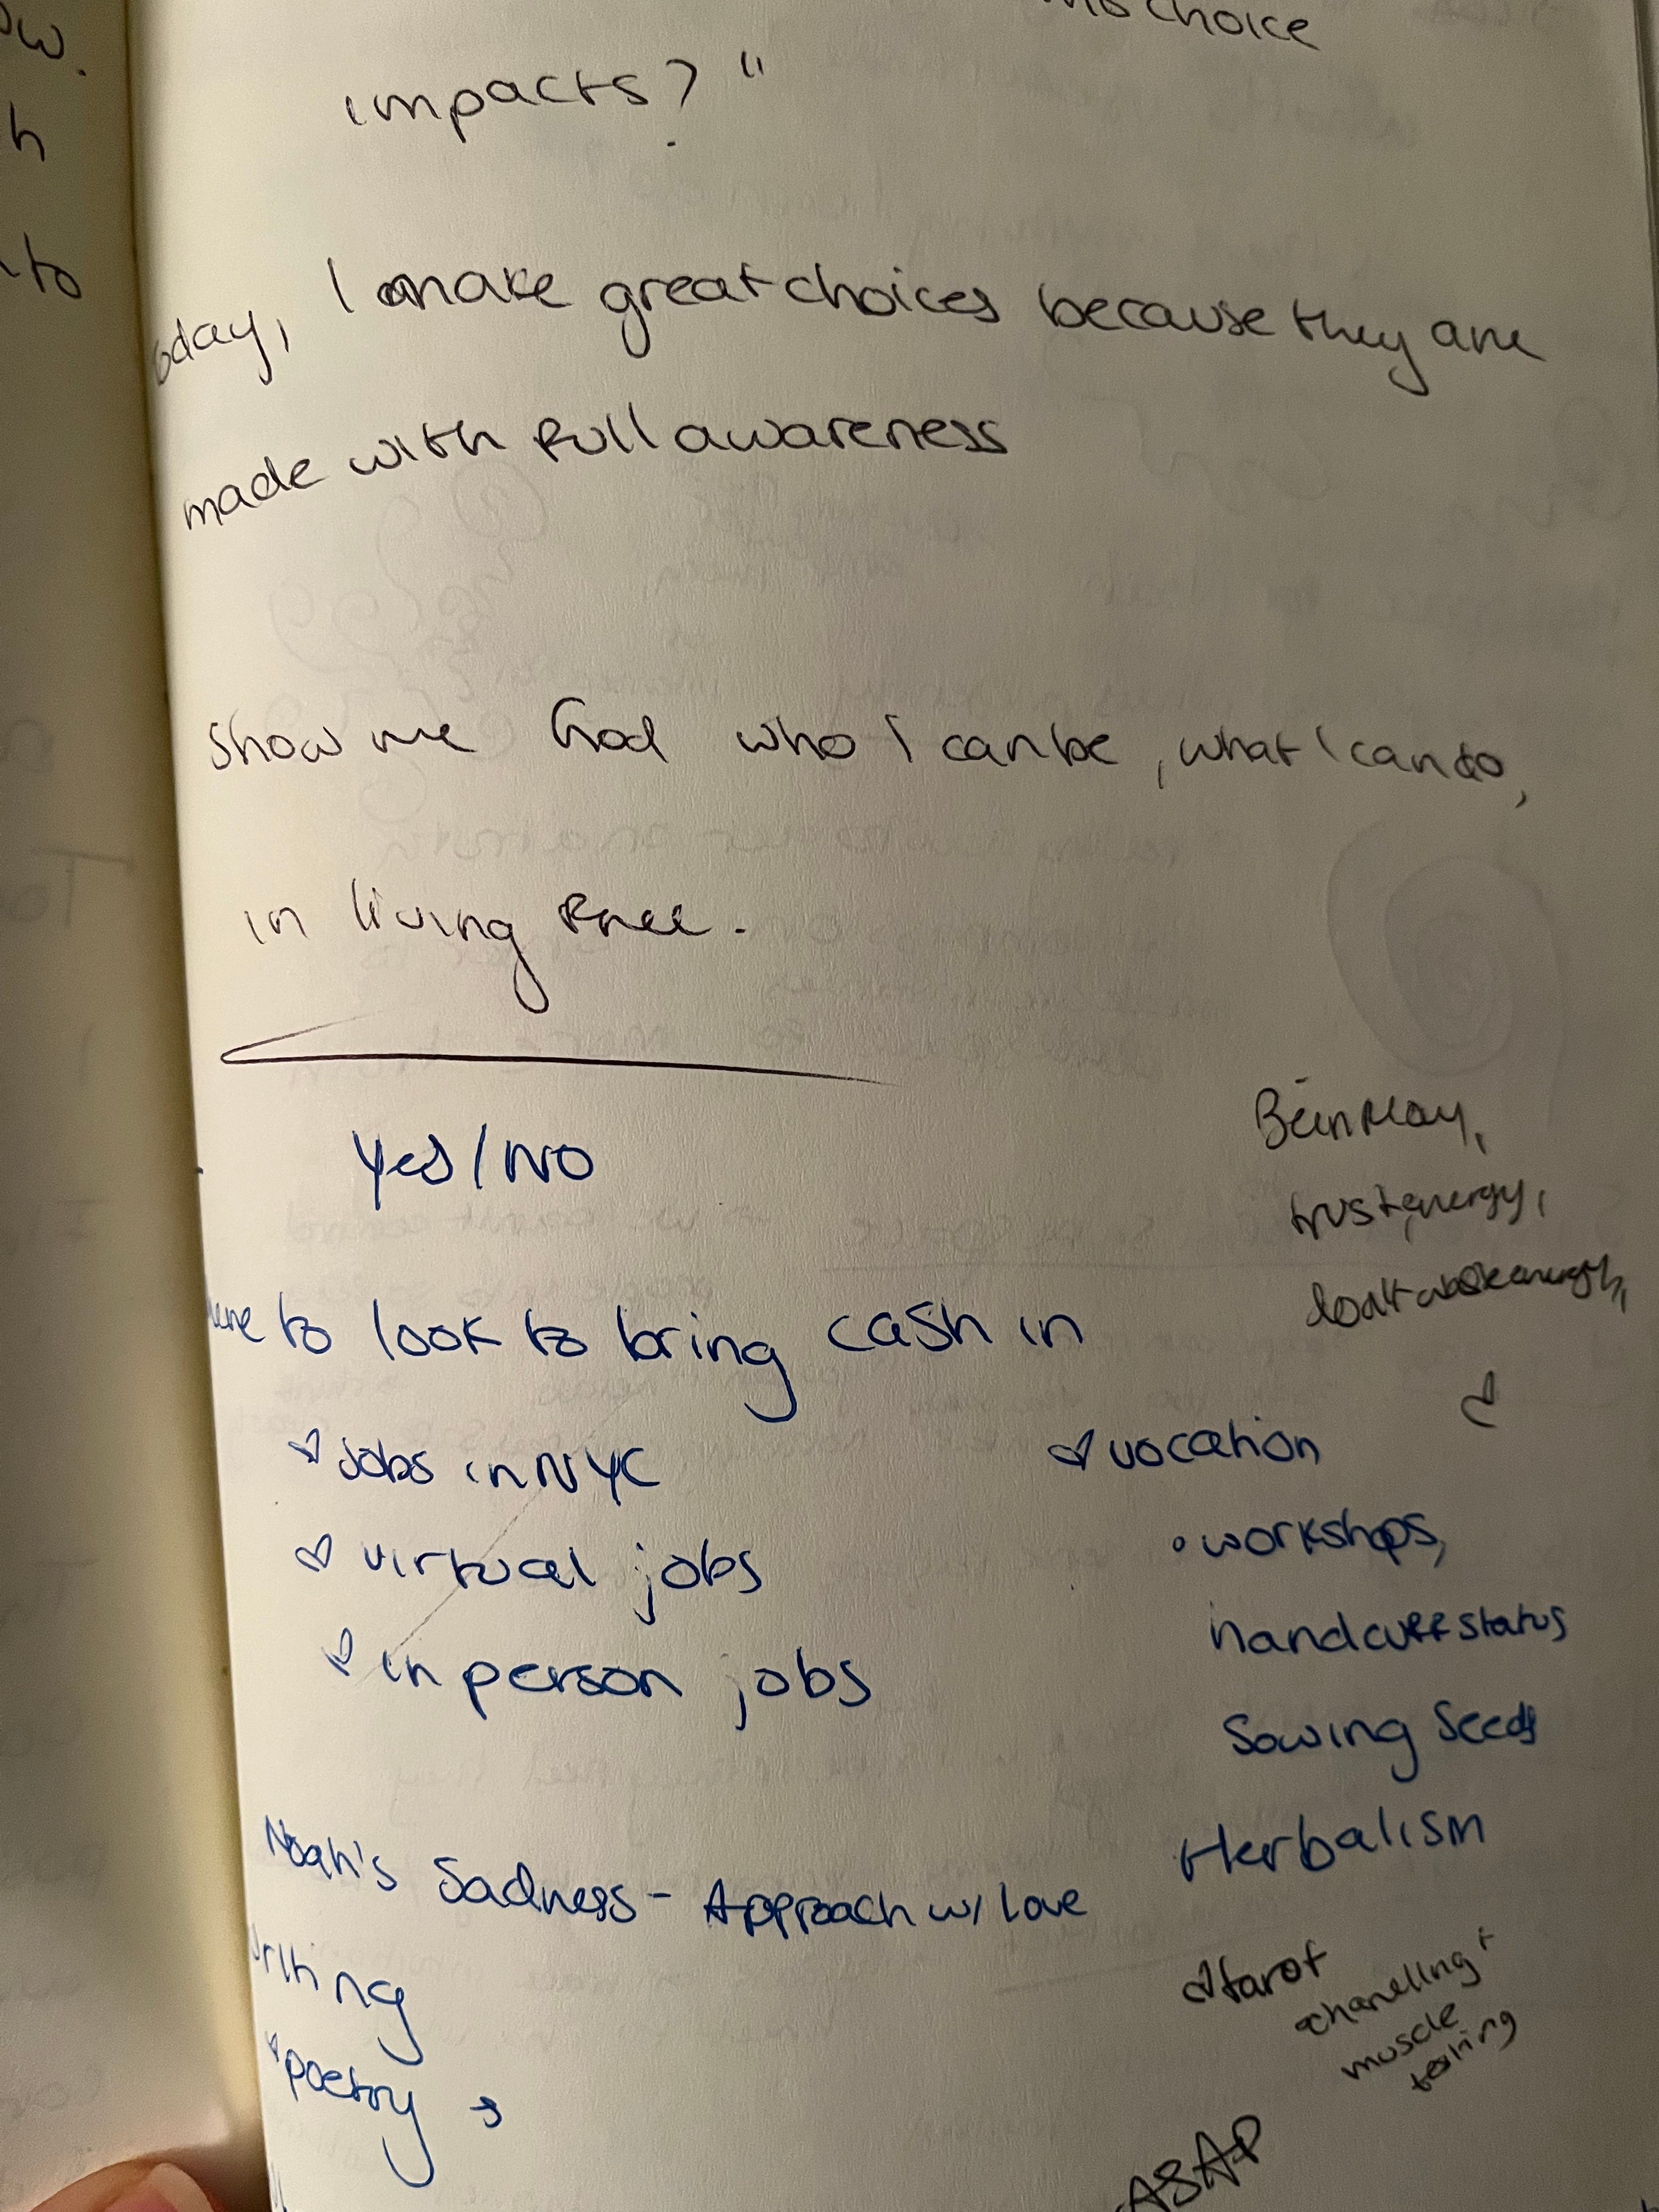 choice
impacts?"
oday, I make great choices because they are
made with full awareness
Show me God who I can be, what I can do,
in living free.
Yes/No
to look to bring cash in
Jobs in NYC
virtual jobs
in person jobs
Noah's Sadness - Approach w/ love
riting
poetry
trust energy,
vocation
workshops,
handcuff status
Sowing Seeds
Herbalism
tarot
chanelling +
muscle
testing
ASAP
ow.
h
to